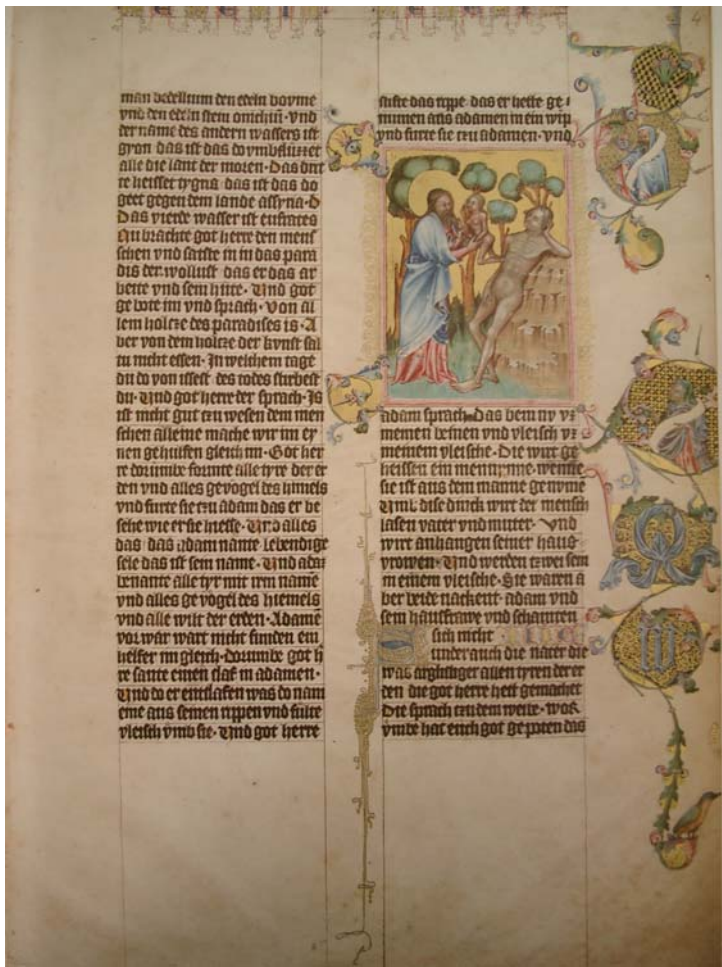 4
man bedellium den edeln boyme
vnd den edeln stein onichiū· vnd
der name des andern wassers ist
gyon das ist das do vmbflüzzet
alle die lant der moren· Das drit
te heisset tygris das ist das do
geet gegen dem lande assyria·
Das vierde wasser ist eufrates
Nu brachte got herre den mens
schen vnd satzte in in das para
dis der wollust das er das ar
beite vnd sein hütte· Vnd got
gebote im vnd sprach· von al
lem holtze des paradises is· A
ber von dem holtze der kvnst sal
tu nicht essen· In welchem tage
du do von issest des todes stirbest
du· Vnd got herre der sprach· Is
ist nicht gut tzu wesen dem men
schen alleine mache wir im ey
nen gehulfen gleich im· Got her
re dorumbe formte alle tyre der er
den vnd alles gevogel des himels
vnd furte sie tzu adam das er be
sehe wie er sie hiesse· Vnd alles
das das adam nante lebendige
sele das ist sein name· Vnd adam
benante alle tyr mit irm name
vnd alles gevogel des hiemels
vnd alle wilt der erden· Adame
vorwar wart nicht funden ein
helfer im gleich· dorumbe got h
re sante einen slaf in adamen·
Vnd do er entslafen was do nam
eine aus seinen rippen vnd fulte
vleisch vmb sie· Vnd got herre
stifte das rippe das er hette ge
numen aus adamen in ein wip
vnd furte sie tzu adamen· vnd
adam sprach Das bein ny vz
meinen beinen vnd vleisch vz
meinem vleische· Die wirt ge
heissen ein mennynne· wenne
sie ist aus dem manne genvme
Vmb dise dinck wirt der mensch
lasen vater vnd muter· Vnd
wirt anhangen seiner haus
vrowen· Vnd werden tzwei sein
in einem vleische· Sie waren a
ber beide nackent· adam vnd
sein hausfrawe vnd schamten
sich nicht
Sunder auch die nater die
was arghstiger allen tyren der er
den die got herre hett gemachet
Die sprach tzu dem weibe· wor
vmbe hat euch got gepoten das